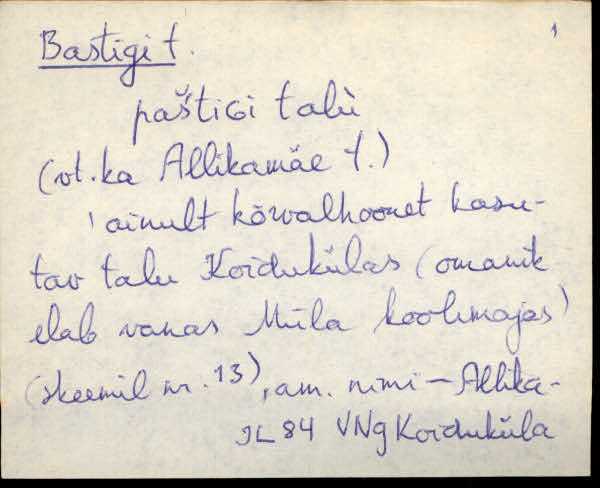 1
Bastigi t.
paštiGi talù
(vt. ka Allikamäe t.)
'ainult kõrvalhoonet kasu-
tav talu Koidukülas (omanik
elab vanas Müla koolimajas)
(skeemil nr. 13), am. nimi — Allika-
JL 84 VNg Koiduküla